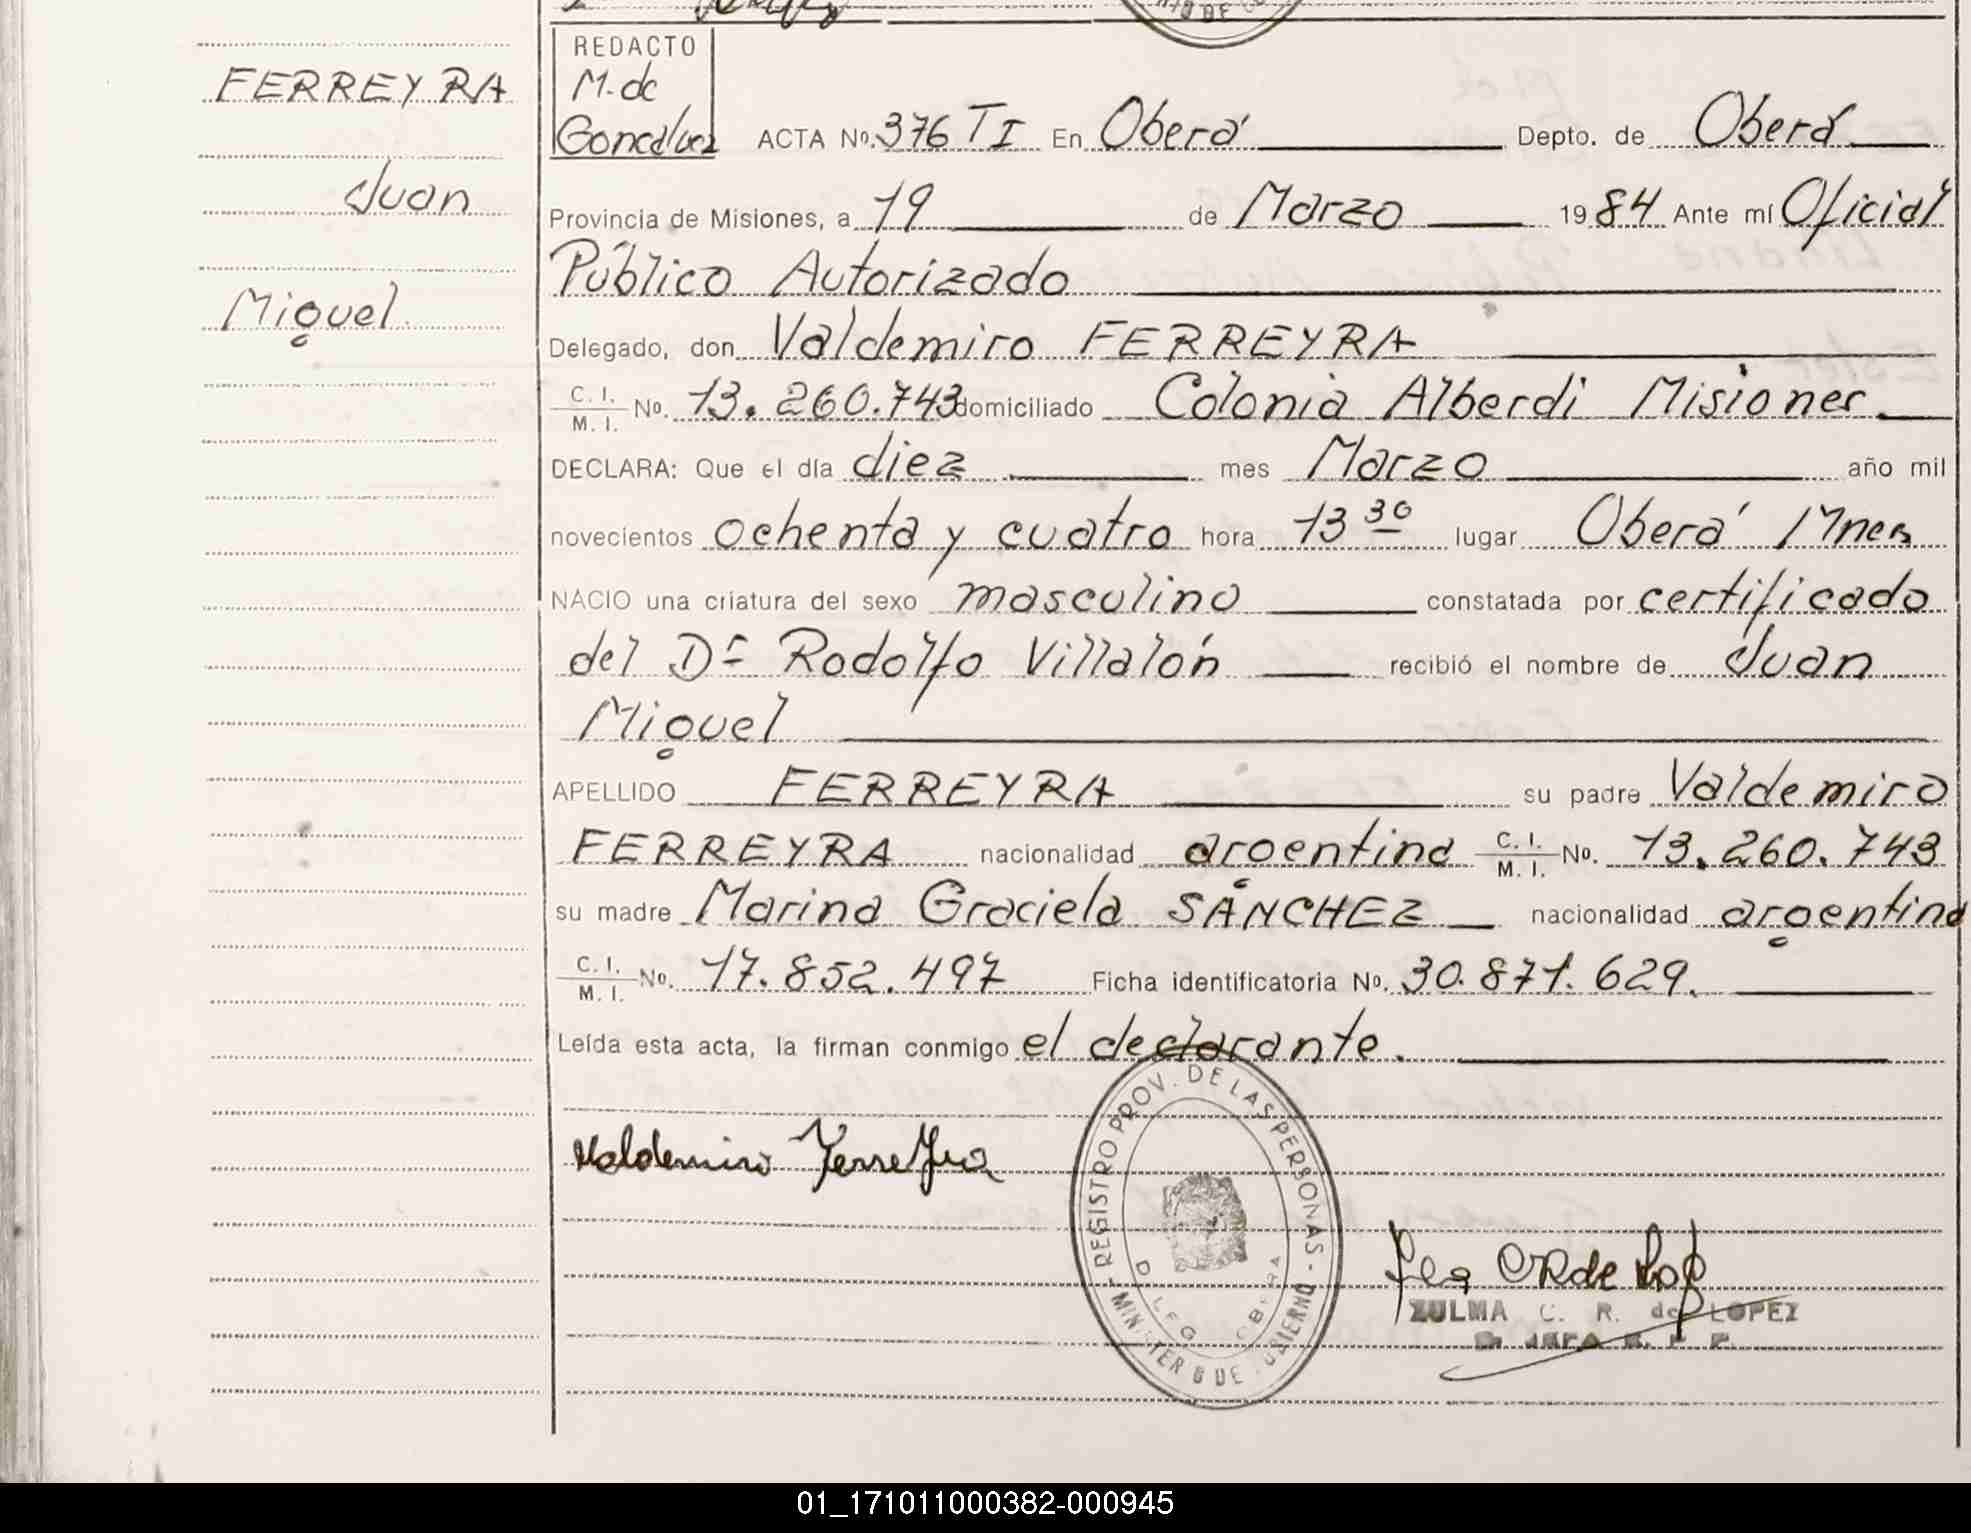 REDACTO
FERREYRA
M. de
Goncálvez
ACTA No. 376 TI En Oberá Depto. de Oberá
Juan
Provincia de Misiones, a 19 de Marzo 1984 Ante mí Oficial
Público Autorizado
Miguel
Delegado, don Valdemiro FERREYRA
C. I.
M. I. No. 13.260.743 domiciliado Colonia Alberdi Misiones
DECLARA: Que el día diez mes Marzo año mil
novecientos ochenta y cuatro hora 13 30 lugar Oberá Mnes
NACIO una criatura del sexo masculino constatada por certificado
del Dr Rodolfo Villalón recibió el nombre de Juan
Miguel
APELLIDO FERREYRA su padre Valdemiro
FERREYRA nacionalidad argentina C. I. M. I. No. 13.260.743
su madre Marina Graciela SÁNCHEZ nacionalidad argentina
C. I. M. I. No. 17.852.497 Ficha identificatoria No. 30.871.629.
Leída esta acta, la firman conmigo el declarante.
REGISTRO PROV. DE LAS PERSONAS
Valdemiro Ferreyra
ZULMA C. R. de LOPEZ
01_171011000382-000945